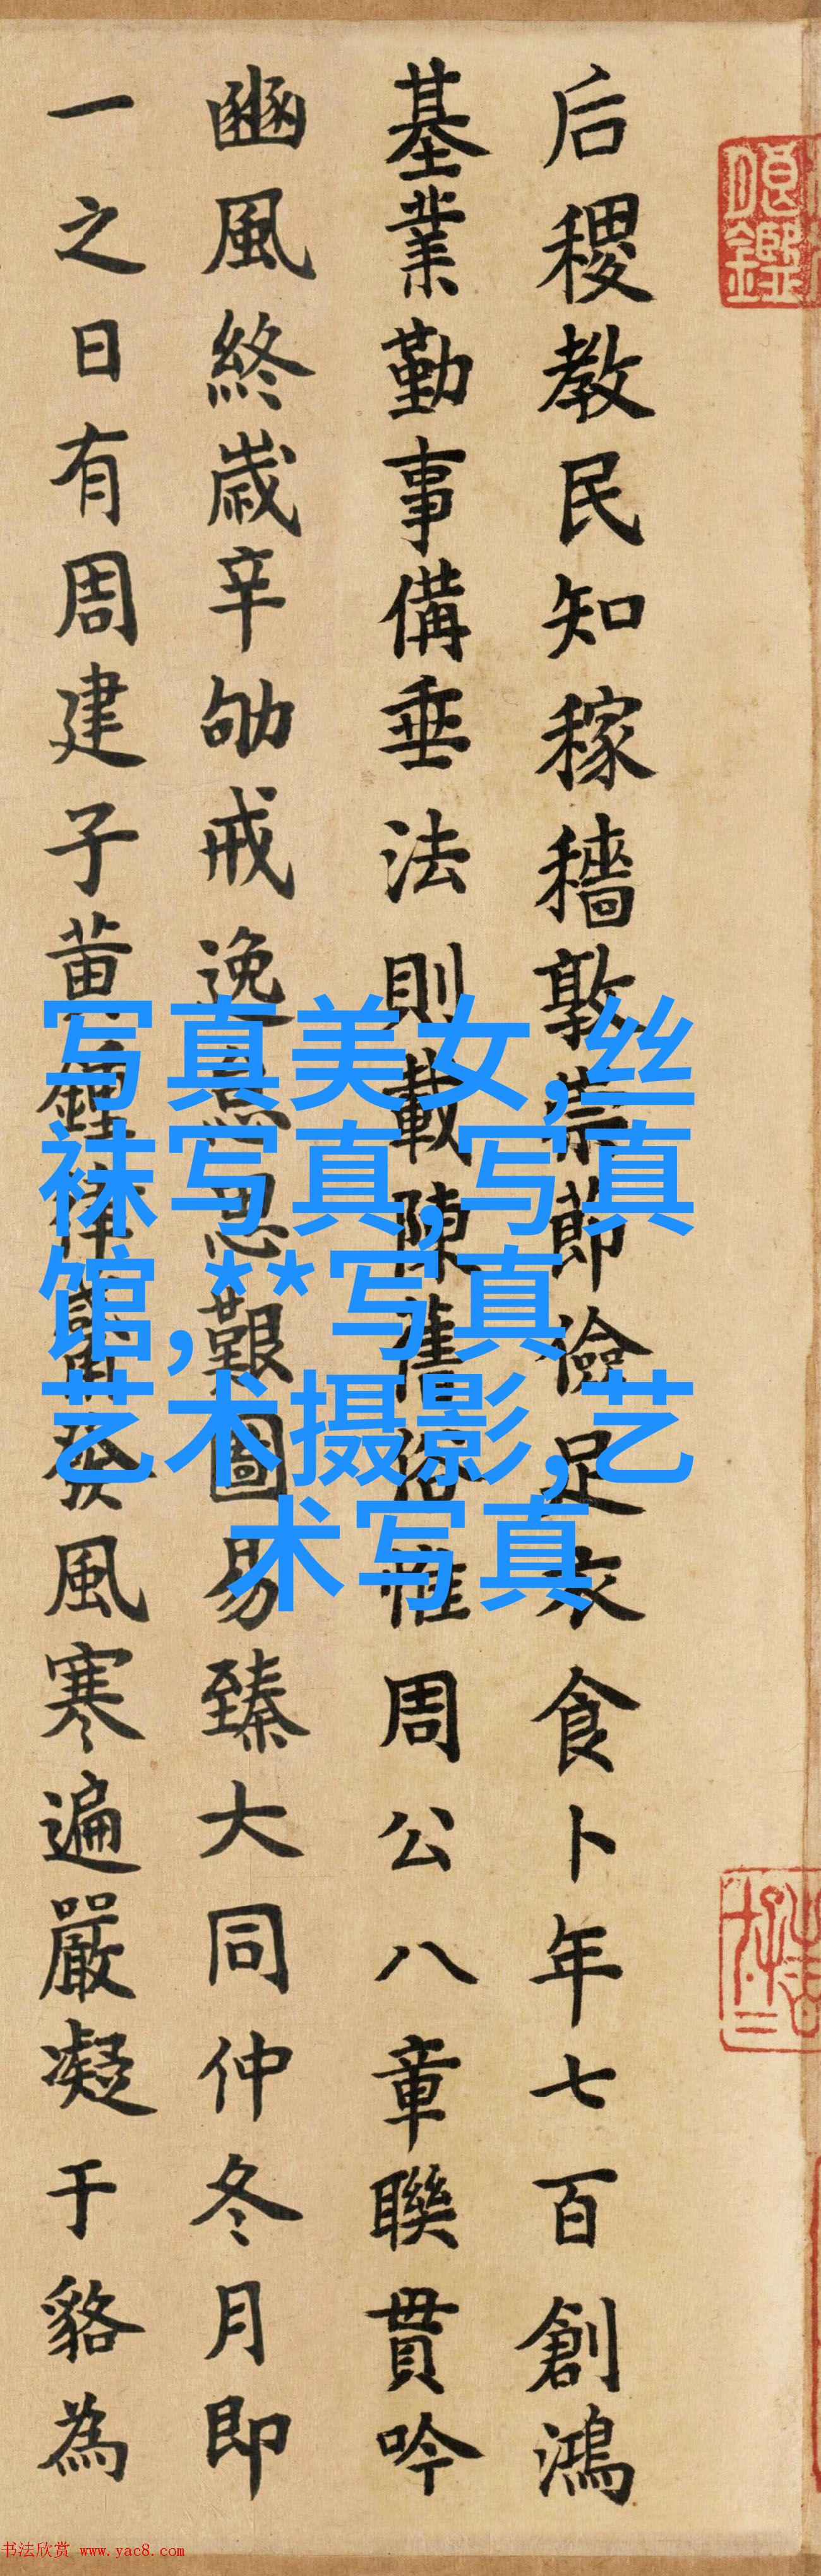 后稷教民知稼穡敦崇節儉足衣食卜年七百創鴻
基業勤事備垂法則載陳舊俗惟周公八章聯貫吟
豳風終歲辛劬戒逸思艱圖易臻大同仲冬月即
一之日有周建子黃鍾律觱發風寒遍嚴凝于貉為
写真美女,丝
袜写真,写真
馆,**写真
艺术摄影,艺
术写真
书法欣赏 www.yac8.com